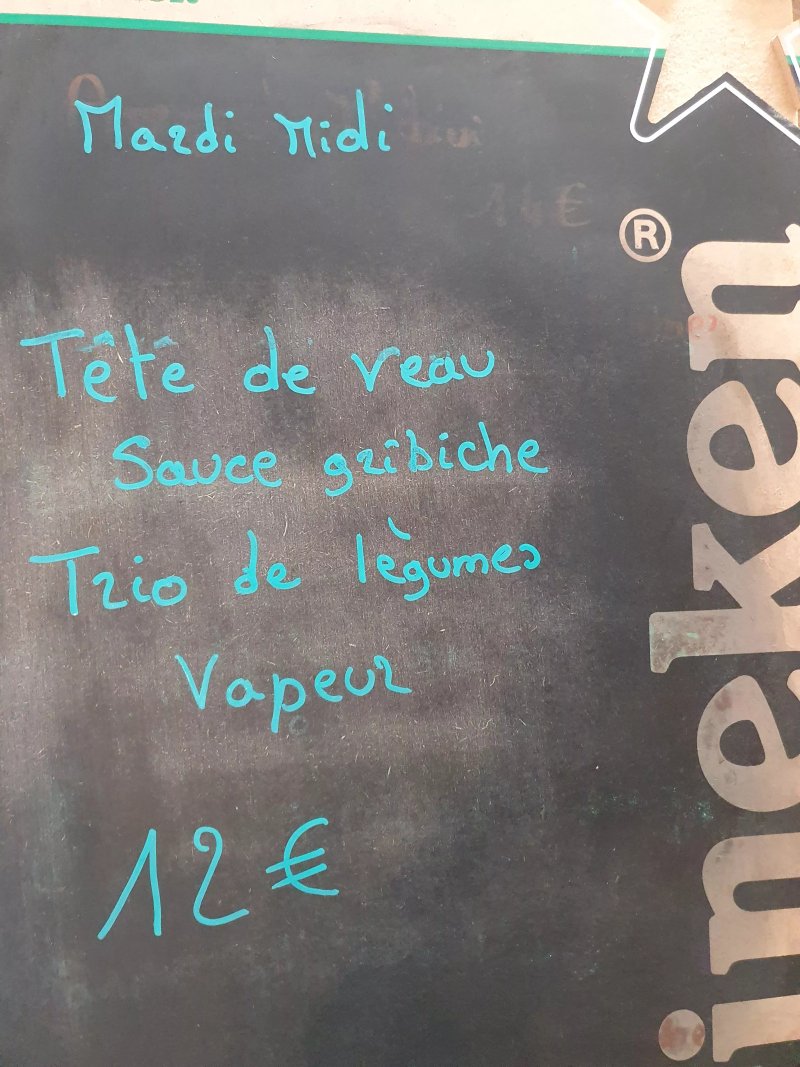 Mardi Midi
14€
®
Tête de veau
Sauce gribiche
Trio de lègumes
Vapeur
12 €
ineken